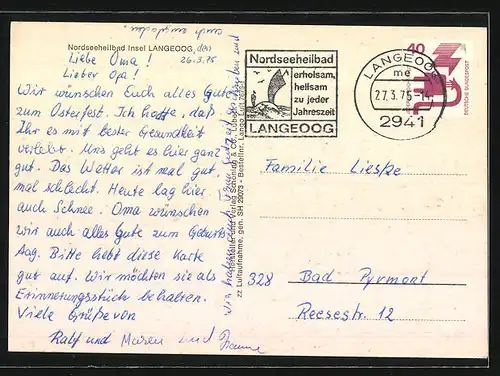 Nordseeheilbad Insel LANGEOOG, den
26.3.75
Liebe Oma!
Lieber Opa!
Wir wünschen Euch alles Gute
zum Osterfest. Ich hoffe, daß
Ihr es mit bester Gesundheit
verlebt. Uns geht es hier ganz
gut. Das Wetter ist mal gut,
mal schlecht. Heute lag hier
auch Schnee. Oma wünschen
wir auch alles Gute zum Geburts
tag. Bitte hebt diese Karte
gut auf. Wir möchten sie als
Erinnerungsstück behalten.
Viele Grüße von
Ralf und Maren und
Nordseeheilbad
erholsam,
heilsam
zu jeder
Jahreszeit
LANGEOOG
LANGEOOG
mc
27.3.75-14
2941
40
DEUTSCHE BUNDESPOST
Familie Lieske
328 Bad Pyrmont
Reesestr. 12